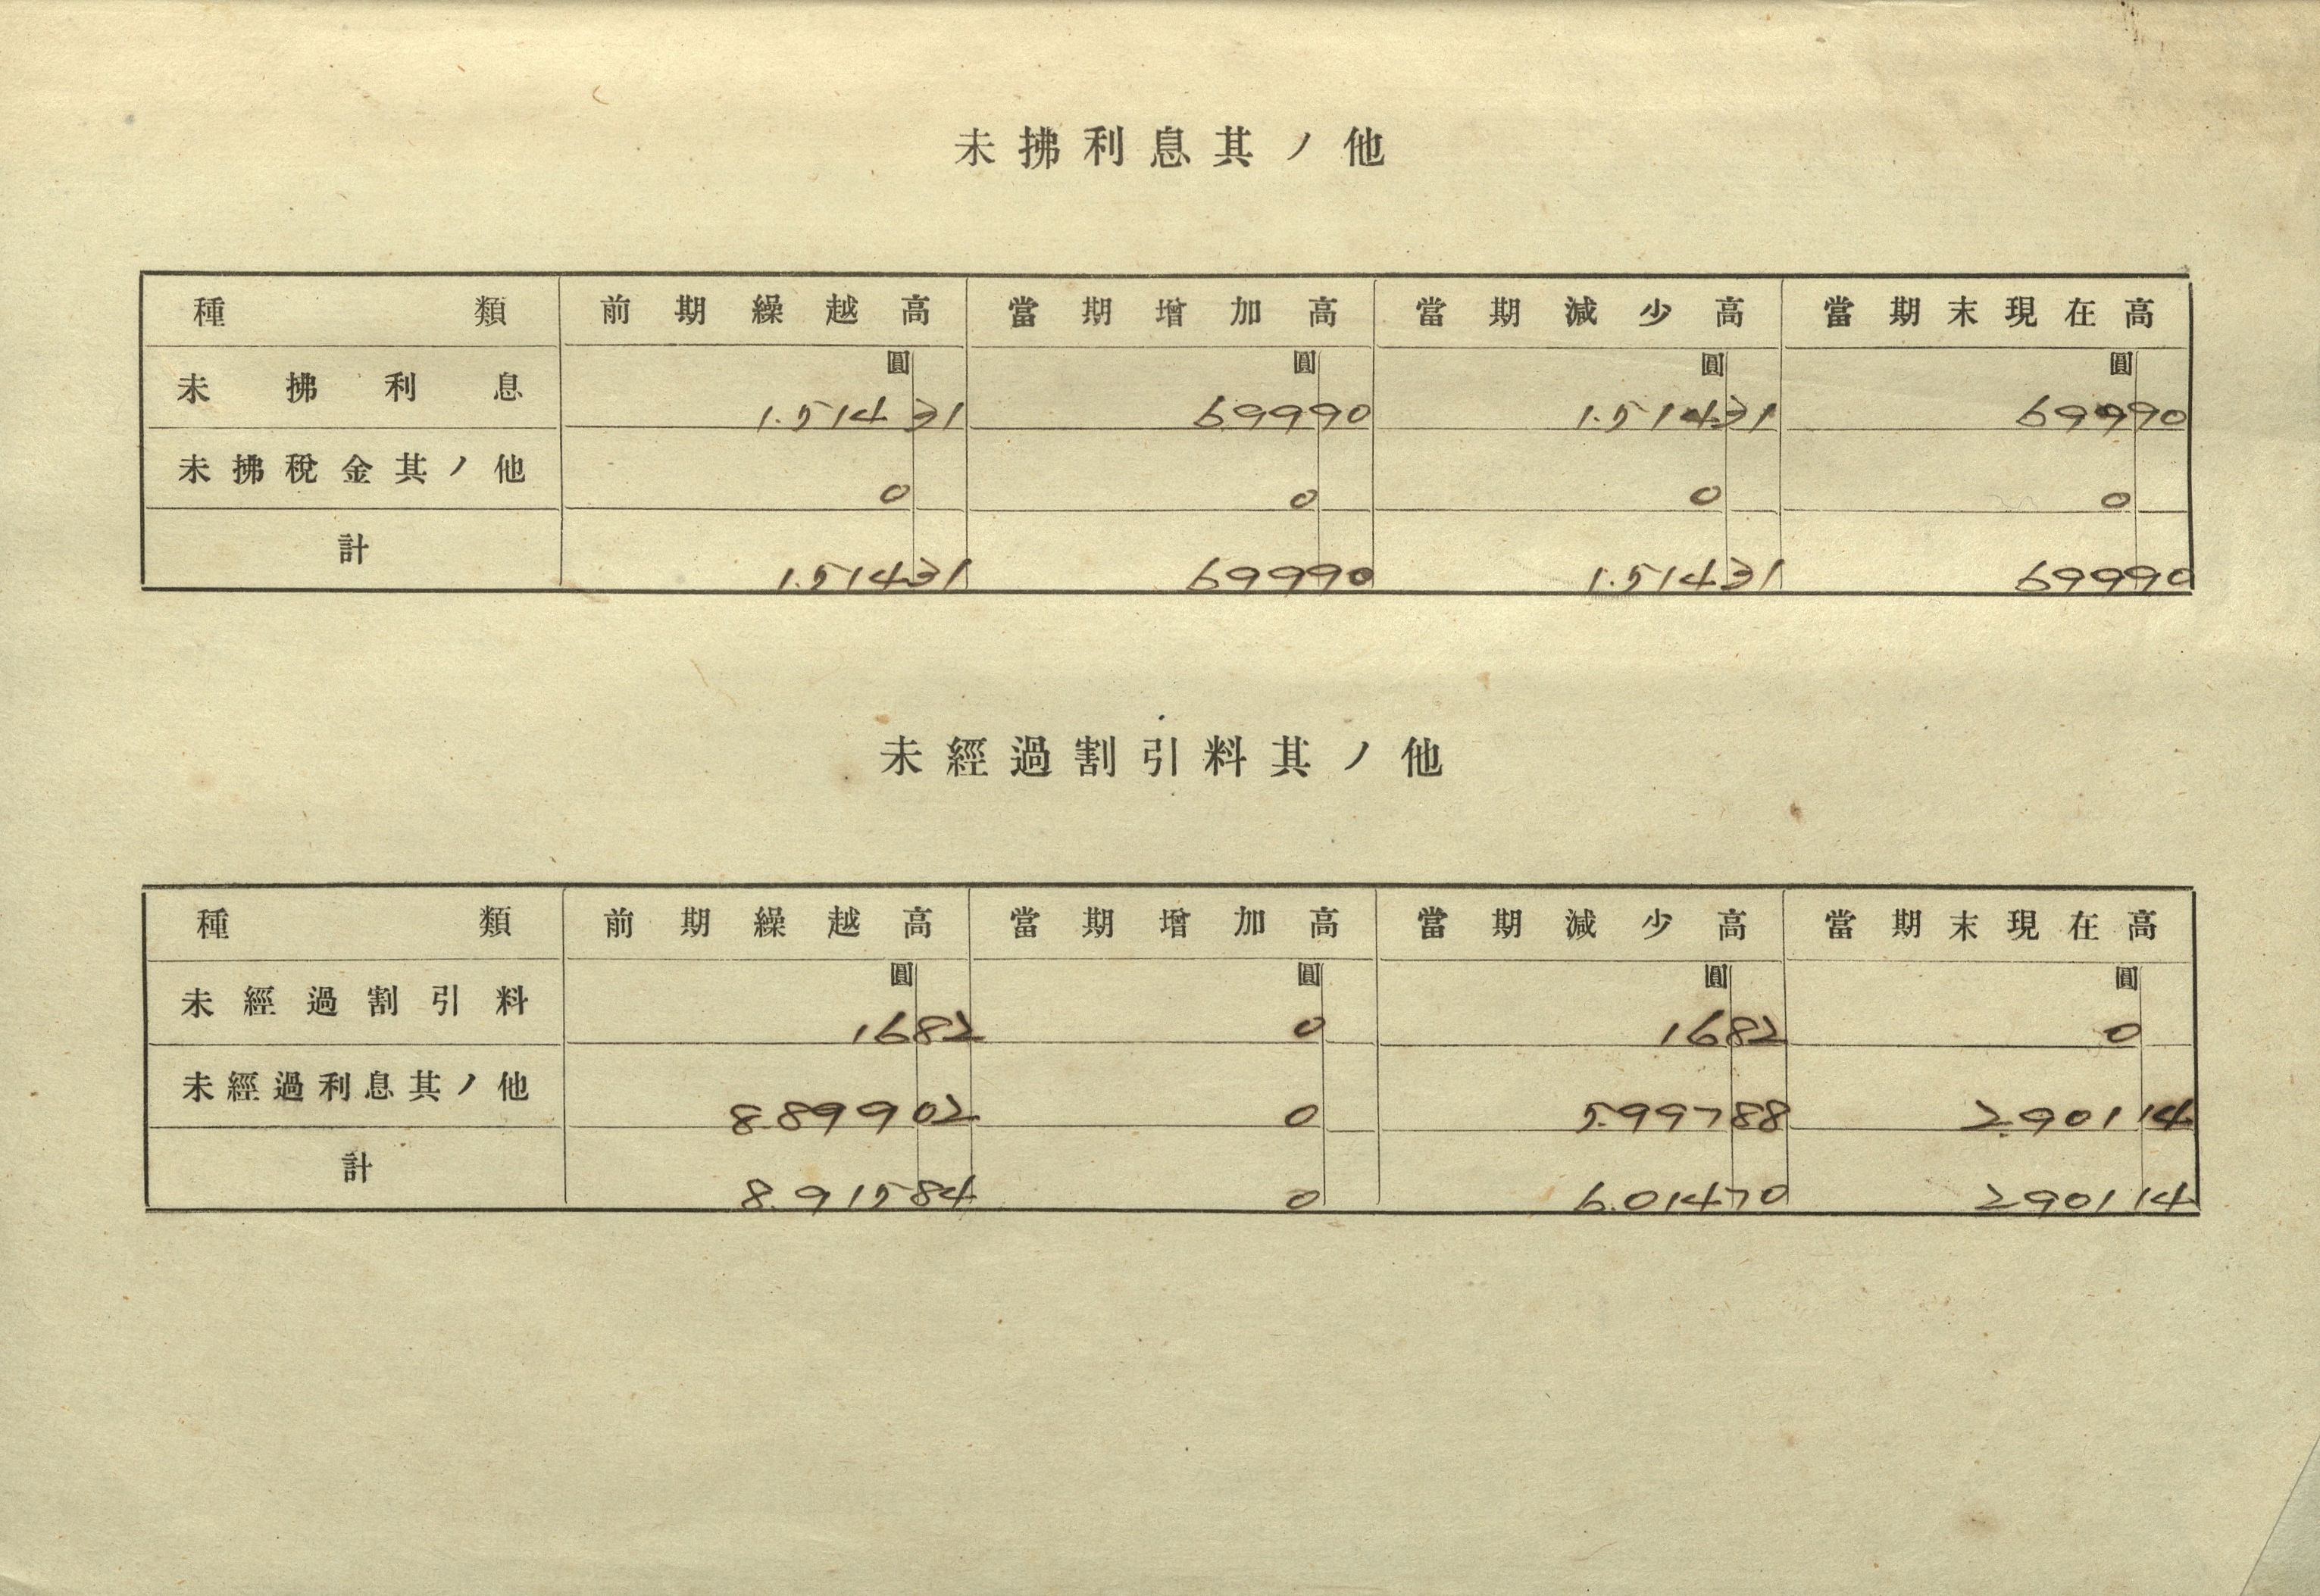 未拂利息其ノ他
種類 前期繰越高 當期增加高 當期減少高 當期末現在高
圓 圓 圓 圓
未拂利息 1.514 31 699 90 1.514 31 699 90
未拂稅金其ノ他 0 0 0 0
計 1.514 31 699 90 1.514 31 699 90
未經過割引料其ノ他
種類 前期繰越高 當期增加高 當期減少高 當期末現在高
圓 圓 圓 圓
未經過割引料 16 82 0 16 82 0
未經過利息其ノ他 8.899 02 0 5.997 88 2.901 14
計 8.915 84 0 6.014 70 2901 14